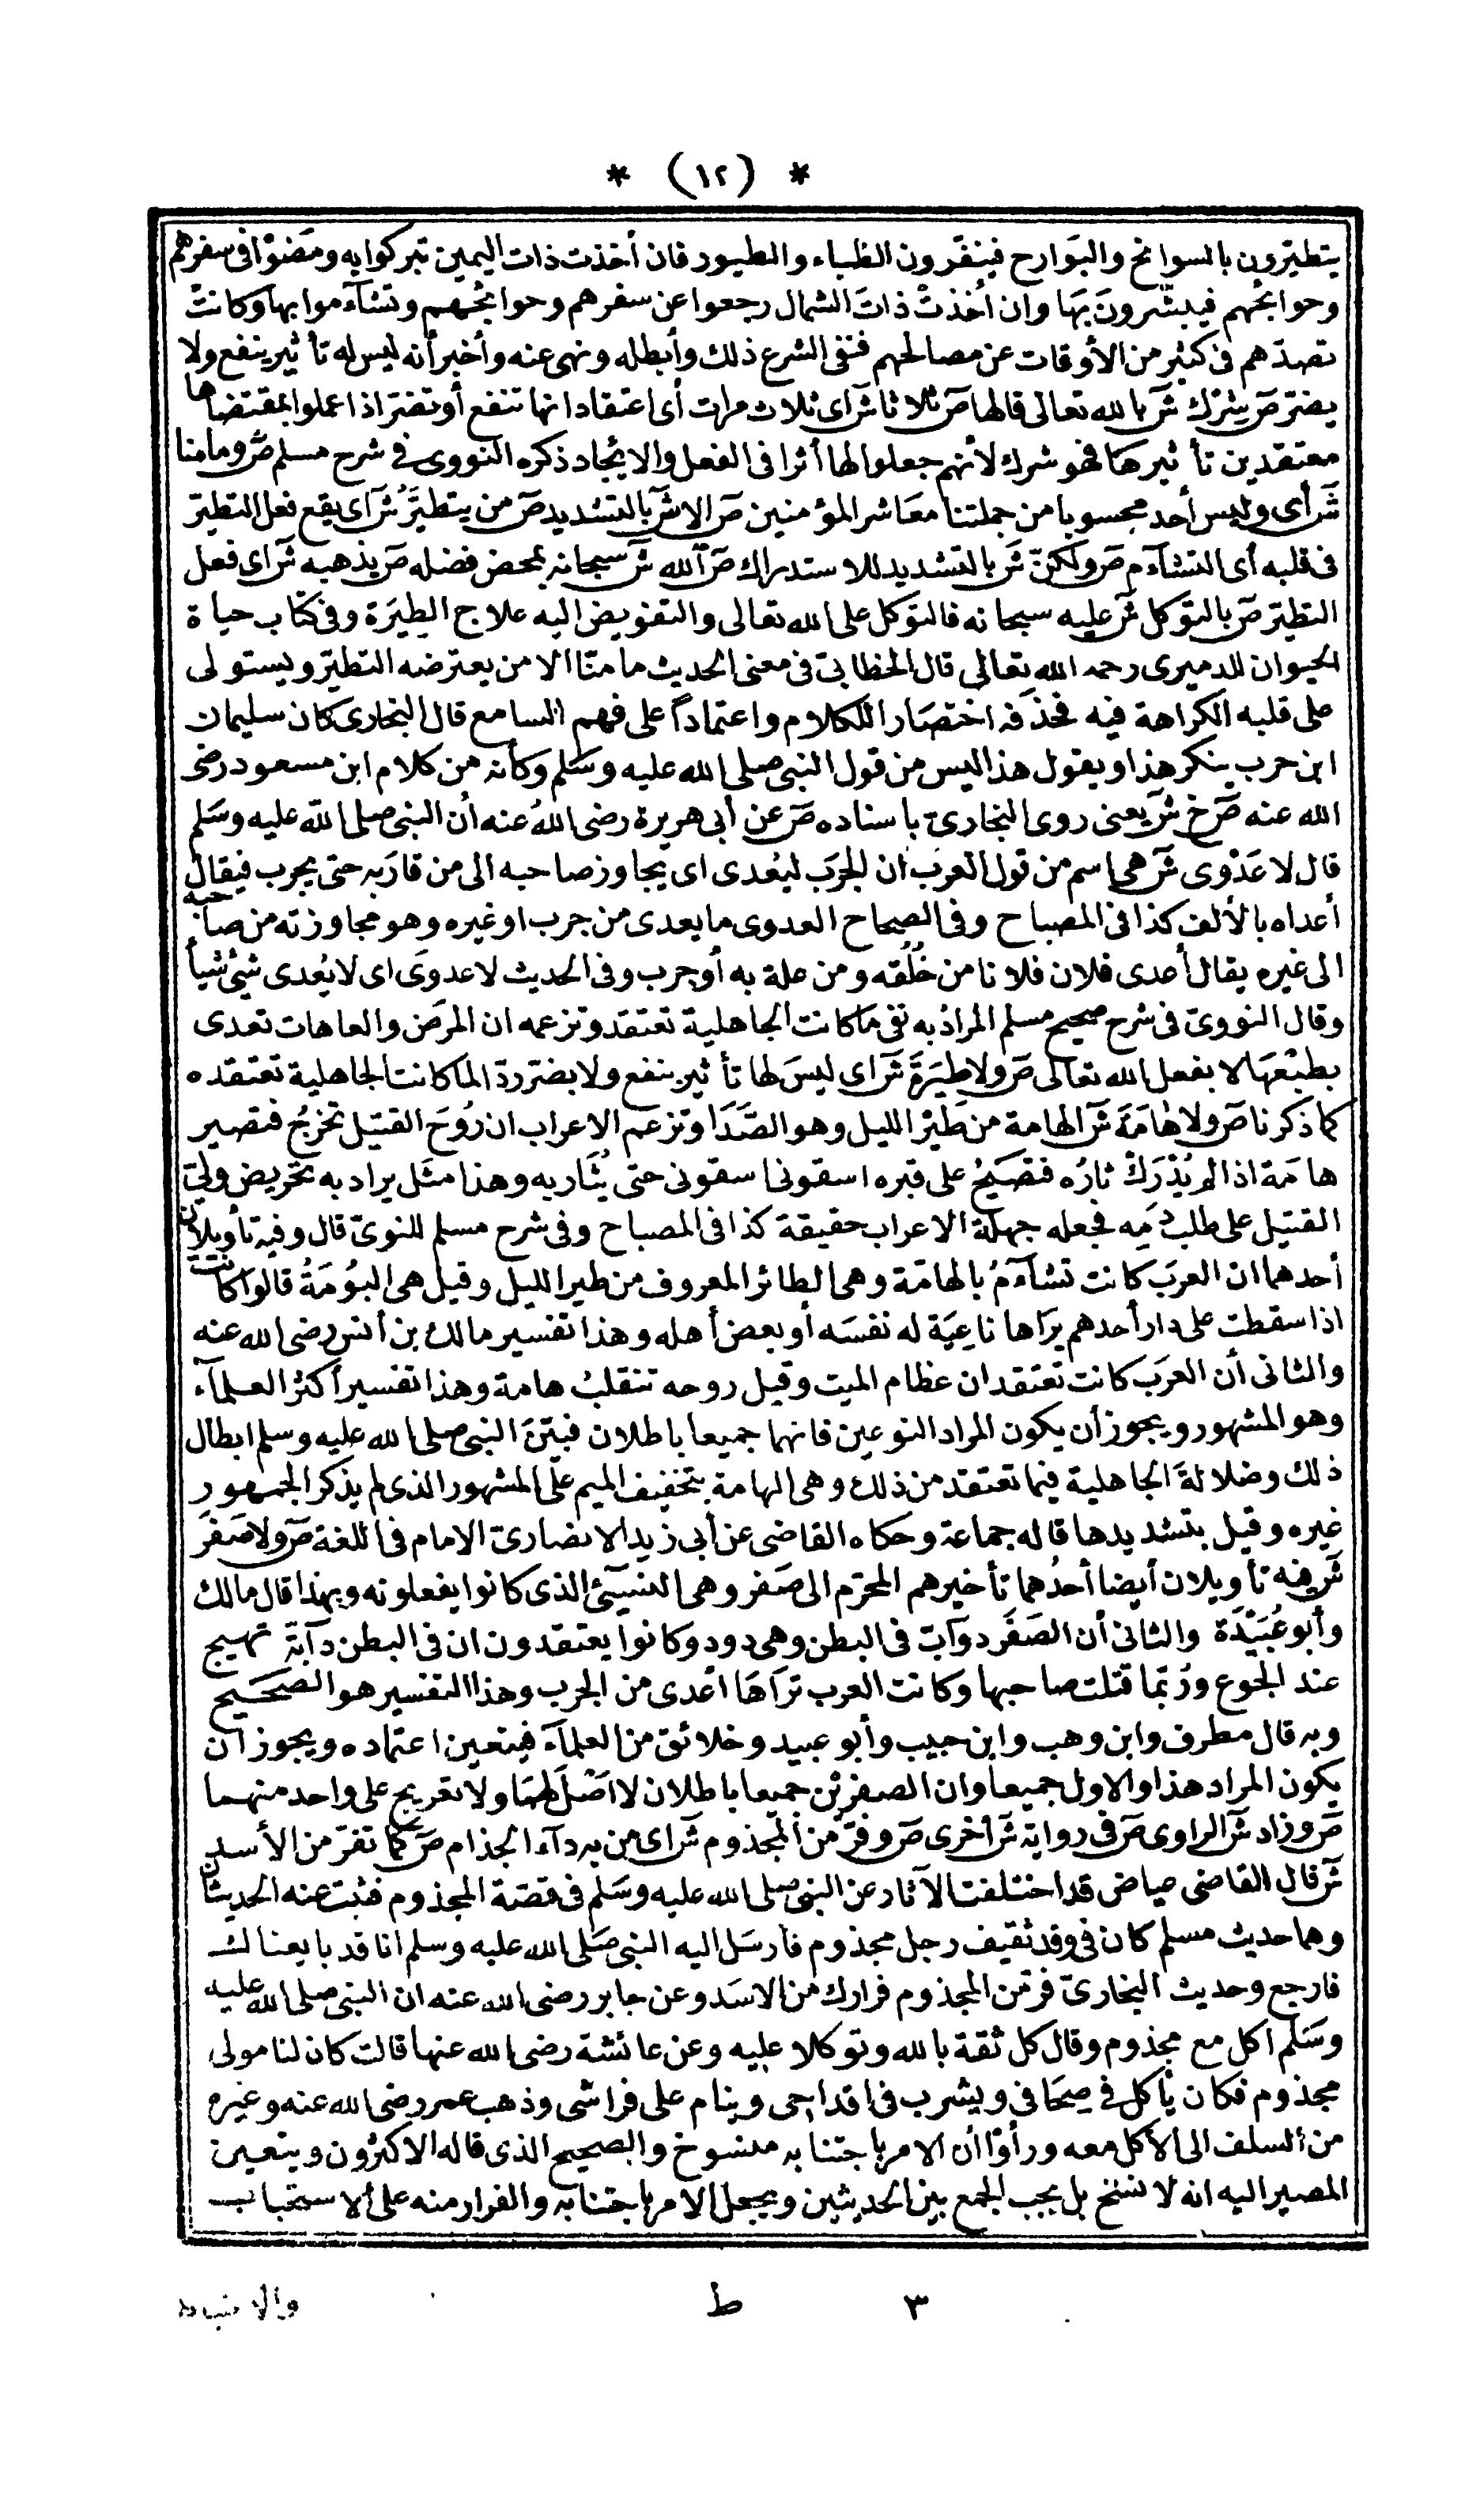 * (١٢) *
يتطيّرون بالسوانح والبَوارح فينفّرون الظباء والطيور فان أخذت ذات اليمين تبركوا به ومَضَوْا فى سفرهم
وحوائجهم فيبشّرونَ بهَا وان أخذتْ ذاتَ الشمال رجعوا عن سفرهم وحوائجهم وتشآءموا بها وكانتْ
تصدّهم فى كثير من الأوقات عن مصالحهم فنفى الشرع ذلك وأبطله ونهى عنه وأخبر أنه ليس له تأثير ينفع ولا
يضرّ صَ شِرْك شَ بالله تعالى قالها صَ ثلاثا شَ اى ثلاث مرات أى اعتقاد انها تنفع أو تضرّ اذا عملوا بمقتضاها
معتقدين تأثيرهَا فهو شرك لأنهم جعلوا لها أثرا فى الفعل والايجاد ذكره النووى فى شرح مسلم صَ وما منا
شَ أى وليس أحد محسوبا من جملتنا معَاشر المؤمنين صَ الا شَ بالتشديد صَ من يتطيَّرُ شَ اى يقع فعل التطيّر
فى قلبه أى التشآءم صَ ولكنّ شَ بالتشديد للاستدراك صَ الله شَ سبحانه بمحض فضله صَ يذهبه شَ اى فعل
التطيّر صَ بالتوكل شَ عليه سبحانه فالتوكل على الله تعالى والتفويض اليه علاج الطِيَرَة وفى كتاب حياة
الحيوان للدميرى رحمه الله تعالى قال الخطابىّ فى معنى الحديث ما منّا الا من يعترضه التطيّر ويستولى
على قلبه الكراهة فيه فحذفه اختصَارا للكلام واعتماداً على فهم السامع قال البخارى كان سليمان
ابن حرب ينكر هذا ويقول هذا ليس من قول النبى صلى الله عليه وسَلم وكأنه من كلام ابن مسعود رضى
الله عنه صَ خ شَ يعنى روى البخارىّ باسناده صَ عن أبى هريرة رضى اللهُ عنه أن النبى صلى الله عليه وسَلم
قال لا عَدْوى شَ هى اسم من قول العرب ان الجرَب ليُعدى اى يجاوز صاحبه الى من قاربه حتى يجرب فيقال
أعداه بالألف كذا فى المصباح وفى الصحاح العدوى ما يعدى من جرب او غيره وهو مجاوزته من صاحبه
الى غيره يقال أعدى فلان فلانا من خُلُقه ومن علة به أو جرب وفى الحديث لا عدوَى اى لا يُعدى شيئ شيأ
وقال النووىّ فى شرح صحيح مسلم المرادُ به نفى مَا كانت الجاهلية تعتقد وتزعمه ان المرَض والعاهات تعدى
بطبْعهَا لا بفعل الله تعالى صَ ولا طِيَرَةَ شَ اى ليسَ لها تأثير ينفع ولا يضرّ ردّ الما كانت الجاهلية تعتقده
كما ذكرنا صَ ولا هَامَةَ شَ الهامة من طَيْر الليل وهو الصَّدَا وتزعم الاعراب ان رُوحَ القتيل تخرجُ فتصير
هامَة اذا لم يُدْرَكْ ثارُه فتصيحُ على قبره اسقونى اسقونى حتى يُثَار به وهذا مثَل يراد به تحريض ولىّ
القتيل على طلب دَمِه فجعله جهلة الاعراب حقيقة كذا فى المصباح وفى شرح مسلم للنوىّ قال وفيه تأويلان
أحدهما ان العرَب كانت تشآءمُ بالهامّة وهى الطائر المعروف من طير الليل وقيل هى البُومَةُ قالوا كانت
اذا سقطت على دار أحدهم يَرَاها ناعِيَة له نفسَه أو بعض أهله وهذا تفسير مالك بن أنس رضى الله عنه
والثانى أن العرَب كانت تعتقد ان عظام الميت وقيل روحه تنقلبُ هامة وهذا تفسير أكثر العلمآء
وهو المشهور ويجوز أن يكون المراد النوعين فانهما جميعا باطلان فبيّنَ النبى صلى الله عليه وسلم ابطال
ذلك وضلالةَ الجاهلية فيما تعتقد من ذلك وهى الهامة بتخفيف الميم على المشهور الذى لم يذكر الجمهور
غيره وقيل بتشديدها قاله جماعة وحكاه القاضى عن أبى زيد الانصارىّ الامام فى اللغة صَ ولا صَفَرَ
شَ فيه تأويلان أيضا أحدُهما تأخيرهم المحرّم الى صَفر وهى النسيئ الذى كانوا يفعلونه وبهذا قال مالك
وأبو عُبَيْدَة والثانى أن الصَفَر دوآبّ فى البطن وهى دود وكانوا يعتقدون ان فى البطن دآبّة تهيج
عند الجوع ورُبّما قتلت صاحبها وكانت العرب ترَاهَا أعدى من الجرب وهذا التفسير هو الصحَيح
وبه قال مطرف وابن وهب وابن حبيب وأبو عبيد وخلائق من العلمآء فيتعين اعتماده ويجوز ان
يكون المراد هذا والاول جميعا وان الصفرَيْن جميعا باطلان لا اَصْلَ لهمَا ولا تعريج على واحد منهما
صَ وزاد شَ الراوى صَ فى رواية شَ أخرى صَ وفرّ من المجذوم شَ اى من به دآء الجذام صَ كما تفرّ من الأسد
شَ قال القاضى عياض قد اختلفت الآثار عن النبى صلى الله عليه وسَلم فى قصّة المجذوم فثبت عنه الحديثان
وهما حديث مسلم كان فى وفد ثقيف رجل مجذوم فأرسَل اليه النبى صَلى الله عليه وسلم انا قد بايعناك
فارجع وحديث البخارىّ فرّ من المجذوم فرارك من الاسَد وعن جابر رضى الله عنه ان النبى صلى الله عليه
وسَلم اكل مع مجذوم وقال كل ثقة بالله وتوكلا عليه وعن عائشة رضى الله عنها قالت كان لنا مولى
مجذوم فكان يأكل فى صِحَافى ويشرب فى اقداحى وينام على فراشى وذهب عمر رضى الله عنه وغيره
من السلف الى الأكل معه ورأوْا أن الامر باجتنابه منسوخ والصحيح الذى قاله الاكثرون ويتعين
المصير اليه انه لا نسخ بل يجب الجمع بين الحديثين ويجعل الامر باجتنابه والفرار منه على الاستحباب
٣ ط